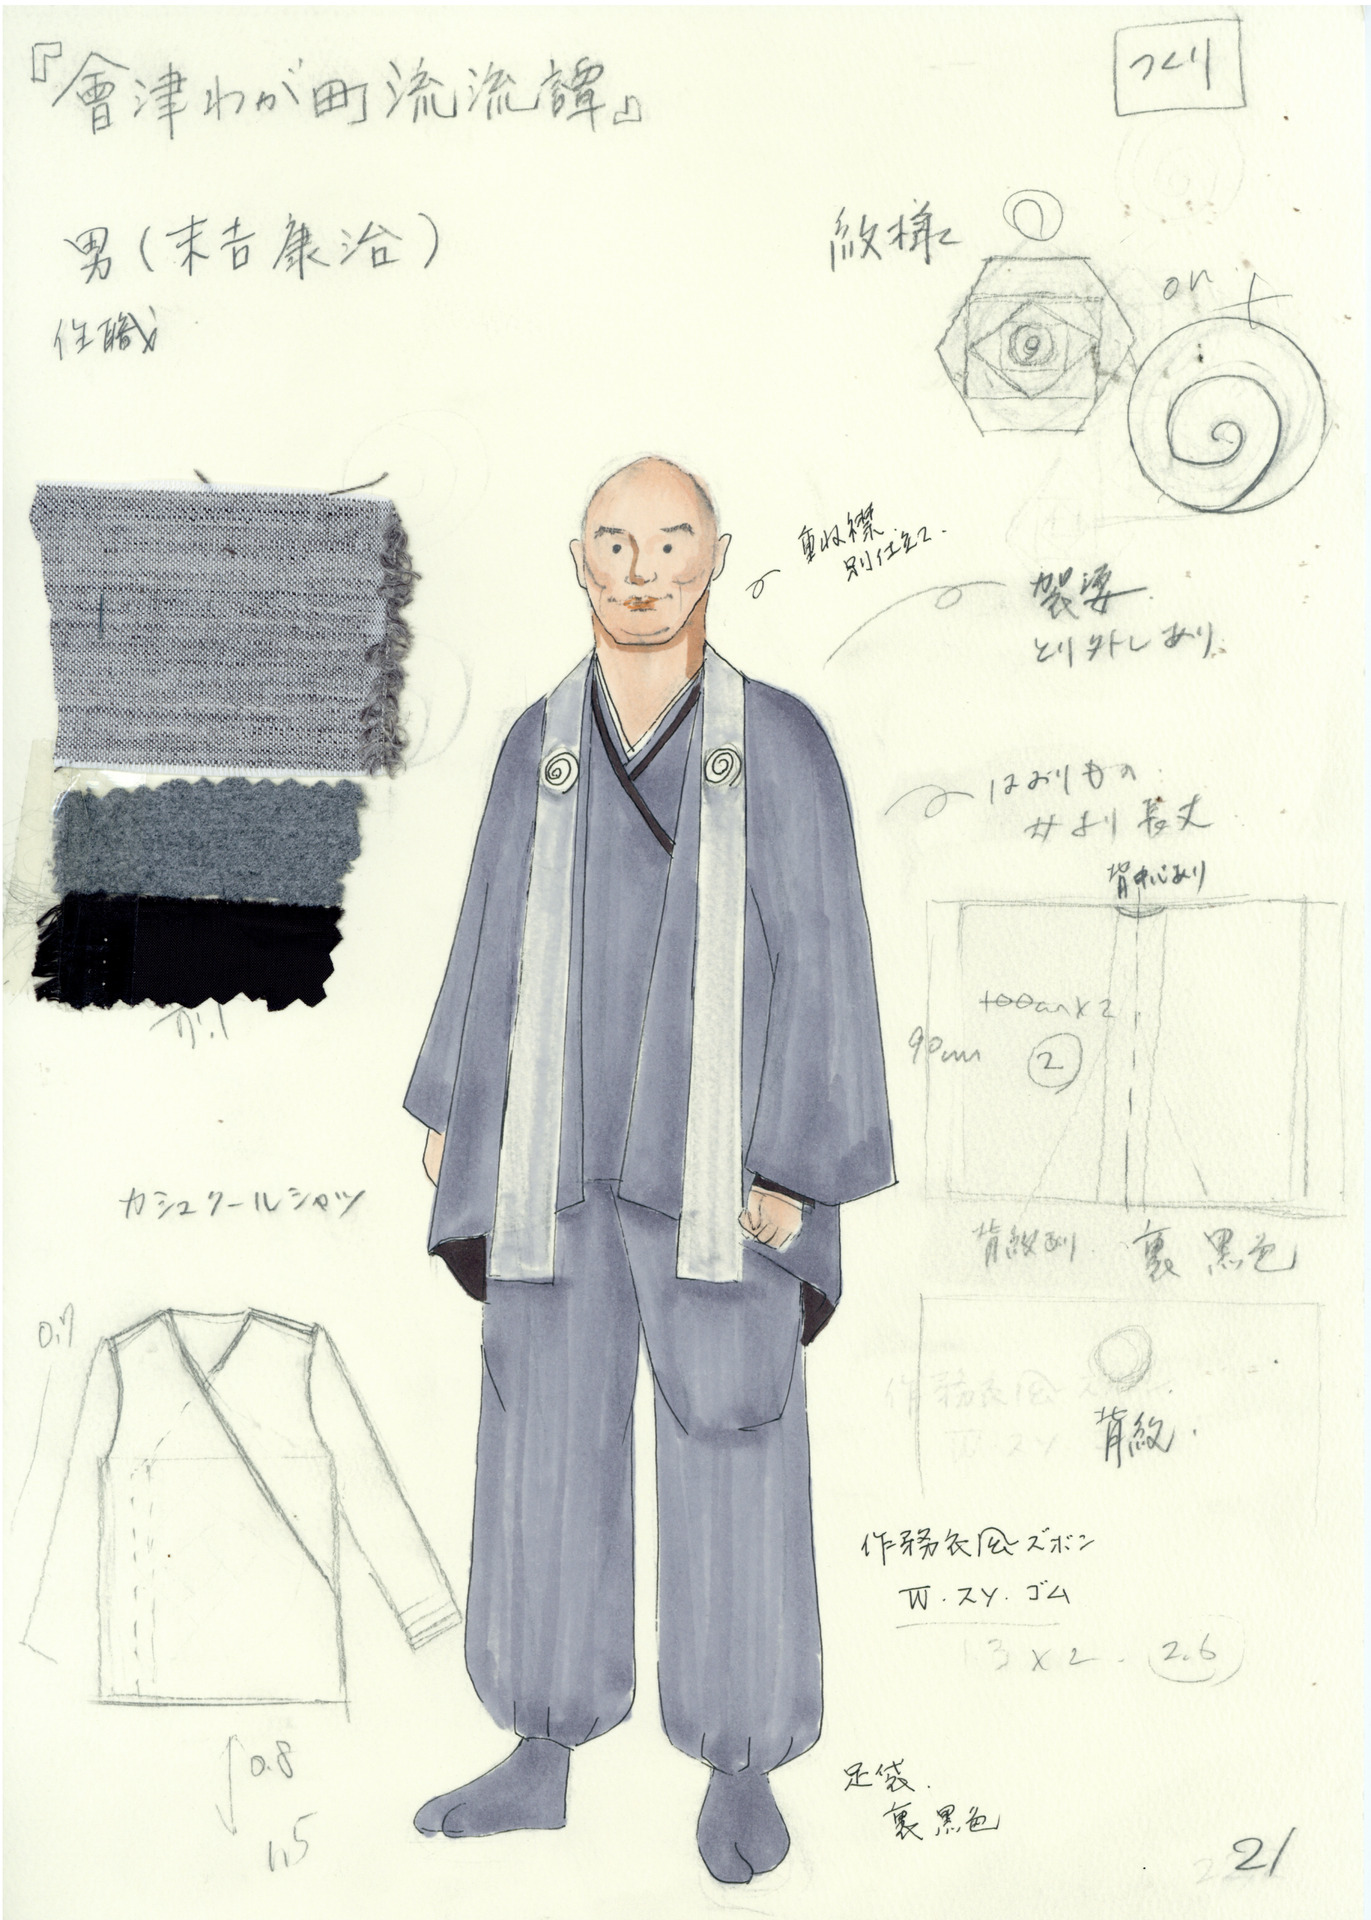 『會津わが町流流譚』
つくり
男(末吉康治)
住職
紋様
or
重ね襟
別仕立て.
袈裟
とり外しあり.
はおりもの
女より長丈
背中心あり
100cm×2
90cm
2
背紋あり 裏 黒色
背紋.
カシュクールシャツ
0.7
0.8
1.5
作務衣風ズボン
W.スソ.ゴム
1.3×2. 2.6
足袋.
裏黒色
21